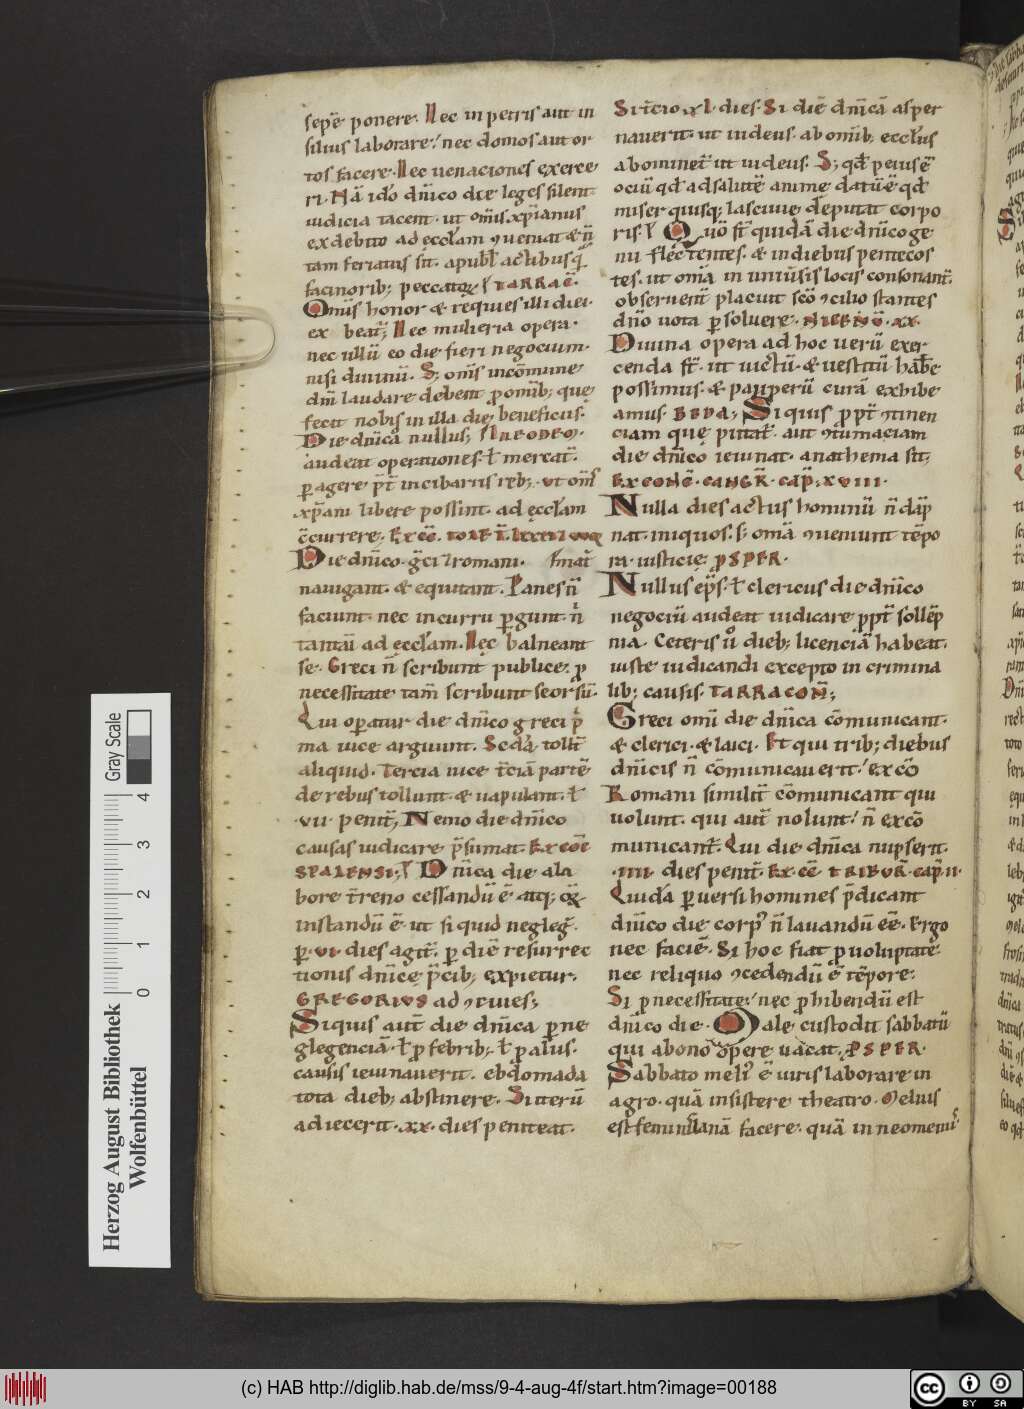 sepē ponere. Nec in petris aut in
siluis laborare. nec domos aut or
tos facere. Nec uenaciones exerce
ri. Nā ido dn̄ico die leges silent
iudicia tacent. ut om̄is xp̄ianus
ex debito ad eccłam ꝯueniat & n̄
tam feriatus sit. a publ' actibus quā
facinorib; peccatoꝝ ł TARRAC̄.
Omīs honor & requies illi diei.
ex beat'; Nec mulieria opera.
nec ullū eo die fieri negocium.
nisi diuinū. S; om̄s incōmune
dn̄m laudare debent p̄ omīb; que
fecit nobis in illa die beneficiis.
Die dn̄ica nullus; IN EODEM.
audeat operationes. ł mercat̄.
ꝑagere p̄t̄ in cibariis reb; ut om̄s
xp̄iani libere possint ad ęccłam
c̄currere. Ex
Die dn̄ico. g̃ci ⁊ romani.
nauigant. & equitant. Panes n̄
faciunt. nec in curru ꝑgunt. n̄
tantū ad eccłam. Nec balneant
se. Greci n̄ scribunt publice. ꝓ
necessitate tam̄ scribunt seorsū.
Qui operatur die dn̄ico greci p̄
ma uice arguunt. Scd̄a tollt̄
aliquid. Tercia uice t̄ciā partē
de rebus tollunt. & uapulant. ł
.VII. penit̄; Nemo die dn̄ico
causas iudicare p̄sumat. Ex cōc̄
SPALENSI; ł Dn̄ica die ala
bore t̄reno cessandū ē atq;
instandū ē ut si quid negleg̃.
ꝑ .VI. dies agit̄. ꝑ diē resurrec
tionis dn̄ice p̄cib; expietur.
GREGORIUS ad ꝯciues;
Siquis aut̄ die dn̄ica ꝑ ne
glegenciā. ł ꝓ febrib;. ł ꝓ alus.
causis ieiunauerit. ebdomada
tota dieb; abstinere. Si iterū
adiecerit. .XX. dies peniteat.
Si t̄cio .XL. dies. Si diē dn̄icā asper
nauerit. ut iudeus. ab om̄ib; eccłiis
abominet̄ ut iudeus. S; qd̄ peius ē
ociū qd̄ ad salutē anime datū ē qd̄
miser quisq; lasciuie deputat corpo
ris. ł Qm̄ sт̄ quidā die dn̄ico ge
nu flectentes. & in diebus pentecos
tes. ut om̄a in uniūsis locis consonant̄
obseruent̄ placuit sc̄o ꝯcilio stantes
dn̄o uota ꝑsoluere. HIERŌNU. XX.
Diuina opera ad hoc uerū exer
cenda st̄. ut uictū. & uestitū hab̄e
possimus. & pauperū curā exhibe
amus. BEDA; Siquis ꝓpt̄ ꝯtinen
ciam que putat̄. aut ꝯtumaciam
die dn̄ico ieiunat. anathema sit;
EX CONC̄. GANGR̄. CAP̄. XVIII.
Nulla dies actus hominū n̄ dāp
nat. iniquos. s; om̄ā ꝯueniunt tēpo
ra. iusticie. PSPER.
Nullus ep̄s. ł clericus die dn̄ico
negociū audeat iudicare ꝓpt̄ sollēp
nia. Ceteris ů dieb; licenciā habeat.
iuste iudicandi excepto in crimina
lib; causis. TARRACON̄;
Greci om̄i die dn̄ica cōmunicant.
& clerici. & laici. Et qui trib; diebus
dn̄icis n̄ cōmunicauerit. excō
Romani similit̄ cōmunicant qui
uolunt. qui aut̄ nolunt. n̄ excō
municant̄. Qui die dn̄ica nupserit.
.IIII. dies penit̄. EX CC̄ TRIBUR̄. CAP̄. II.
Quidā ꝑuersi homines p̄dicant
dn̄ico die corp' n̄ lauandū eē. Ergo
nec faciē. Si hoc fiat ꝓ uoluptate
nec reliquo ꝯcedendū ē tēpore.
Si ꝓ necessitate. nec ꝓhibendū est
dn̄ico die. Male custodit sabbatū
qui a bono opere uacat. PSPER.
Sabbato meli' ē uiris laborare in
agro. quā insistere theatro. Melius
est feminis lanā facere. quā in neomeniis
Herzog August Bibliothek
Wolfenbüttel
Gray Scale
0 1 2 3 4
(c) HAB http://diglib.hab.de/mss/9-4-aug-4f/start.htm?image=00188
cc BY SA